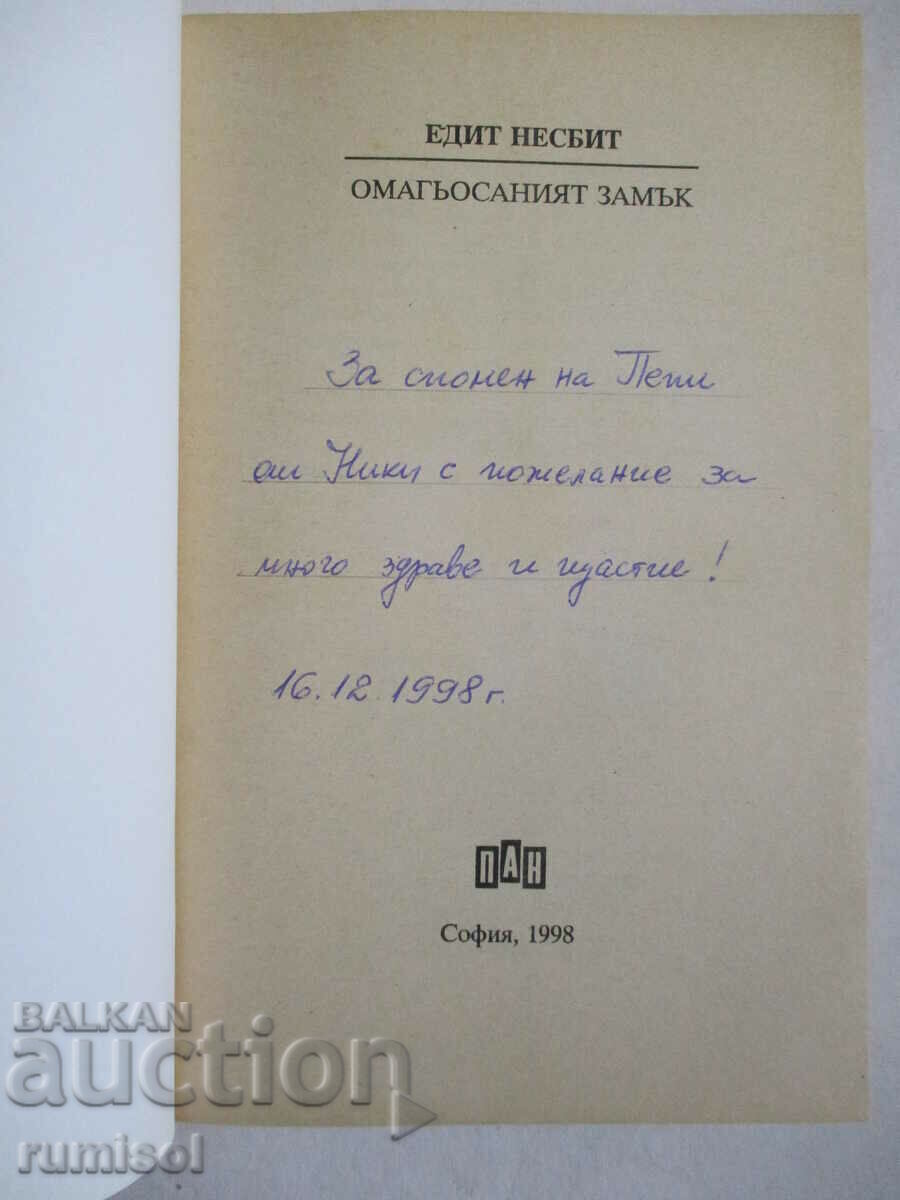 ЕДИТ НЕСБИТ
ОМАГЬОСАНИЯТ ЗАМЪК
За спомен на Пепи
от Ники с пожелание за
много здраве и щастие!
16.12.1998 г.
ПАН
София, 1998
BALKAN
auction
rumisol